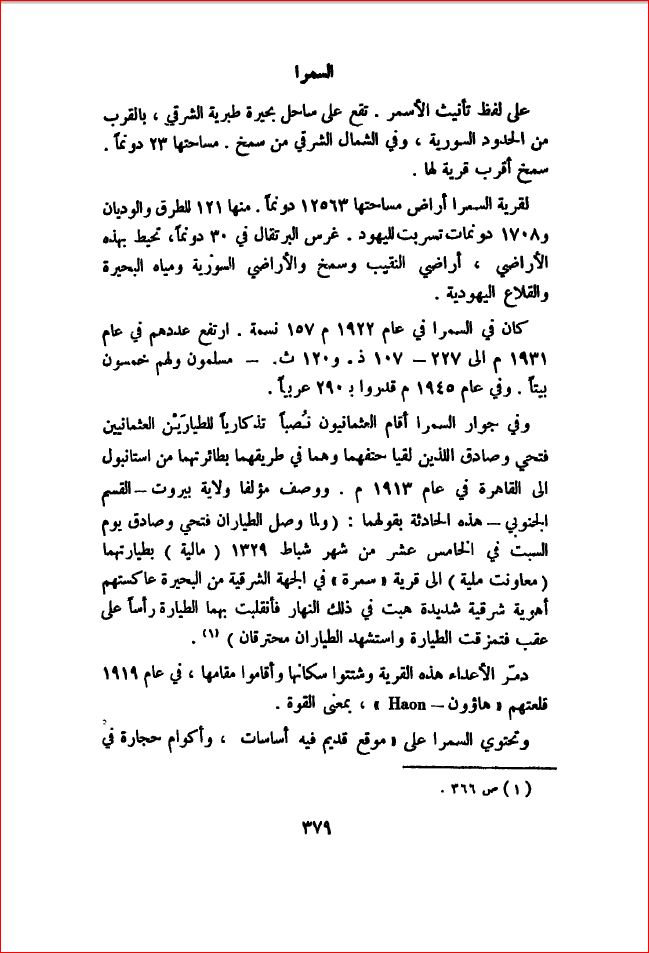 السمرا
على لفظ تأنيث الأسمر . تقع على ساحل بحيرة طبرية الشرقي ، بالقرب
من الحدود السورية ، وفي الشمال الشرقي من سمخ . مساحتها ٢٣ دونماً .
سمخ أقرب قرية لها .
لقرية السمرا أراض مساحتها ١٢٥٦٣ دونماً . منها ١٢١ للطرق والوديان
و١٧٠٨ دونمات تسربت لليهود . غرس البرتقال في ٣٠ دونماً، تحيط بهذه
الأراضي ، أراضي النقيب وسمخ والأراضي السورية ومياه البحيرة
والقلاع اليهودية .
كان في السمرا في عام ١٩٢٢ م ١٥٧ نسمة . ارتفع عددهم في عام
١٩٣١ م الى ٢٢٧ – ١٠٧ ذ. و١٢٠ ث. – مسلمون ولهم خمسون
بيتاً . وفي عام ١٩٤٥ م قدروا بـ ٢٩٠ عربياً .
وفي جوار السمرا أقام العثمانيون نُصباً تذكارياً للطيارَيْن العثمانيين
فتحي وصادق اللذين لقيا حتفهما وهما في طريقهما بطائرتهما من استانبول
الى القاهرة في عام ١٩١٣ م . ووصف مؤلفا ولاية بيروت – القسم
الجنوبي – هذه الحادثة بقولهما : ( ولما وصل الطياران فتحي وصادق يوم
السبت في الخامس عشر من شهر شباط ١٣٢٩ ( مالية ) بطيارتهما
( معاونت ملية ) الى قرية « سمرة » في الجهة الشرقية من البحيرة عاكستهم
أهوية شرقية شديدة هبت في ذلك النهار فأنقلبت بهما الطيارة رأساً على
عقب فتمزقت الطيارة واستشهد الطياران محترقان ) (١) .
دمّر الأعداء هذه القرية وشتتوا سكانها وأقاموا مقامها ، في عام ١٩١٩
قلعتهم « هاؤون – Haon » ، بمعنى القوة .
وتحتوي السمرا على « موقع قديم فيه أساسات ، وأكوام حجارة في
(١) ص ٣٦٦ .
٣٧٩